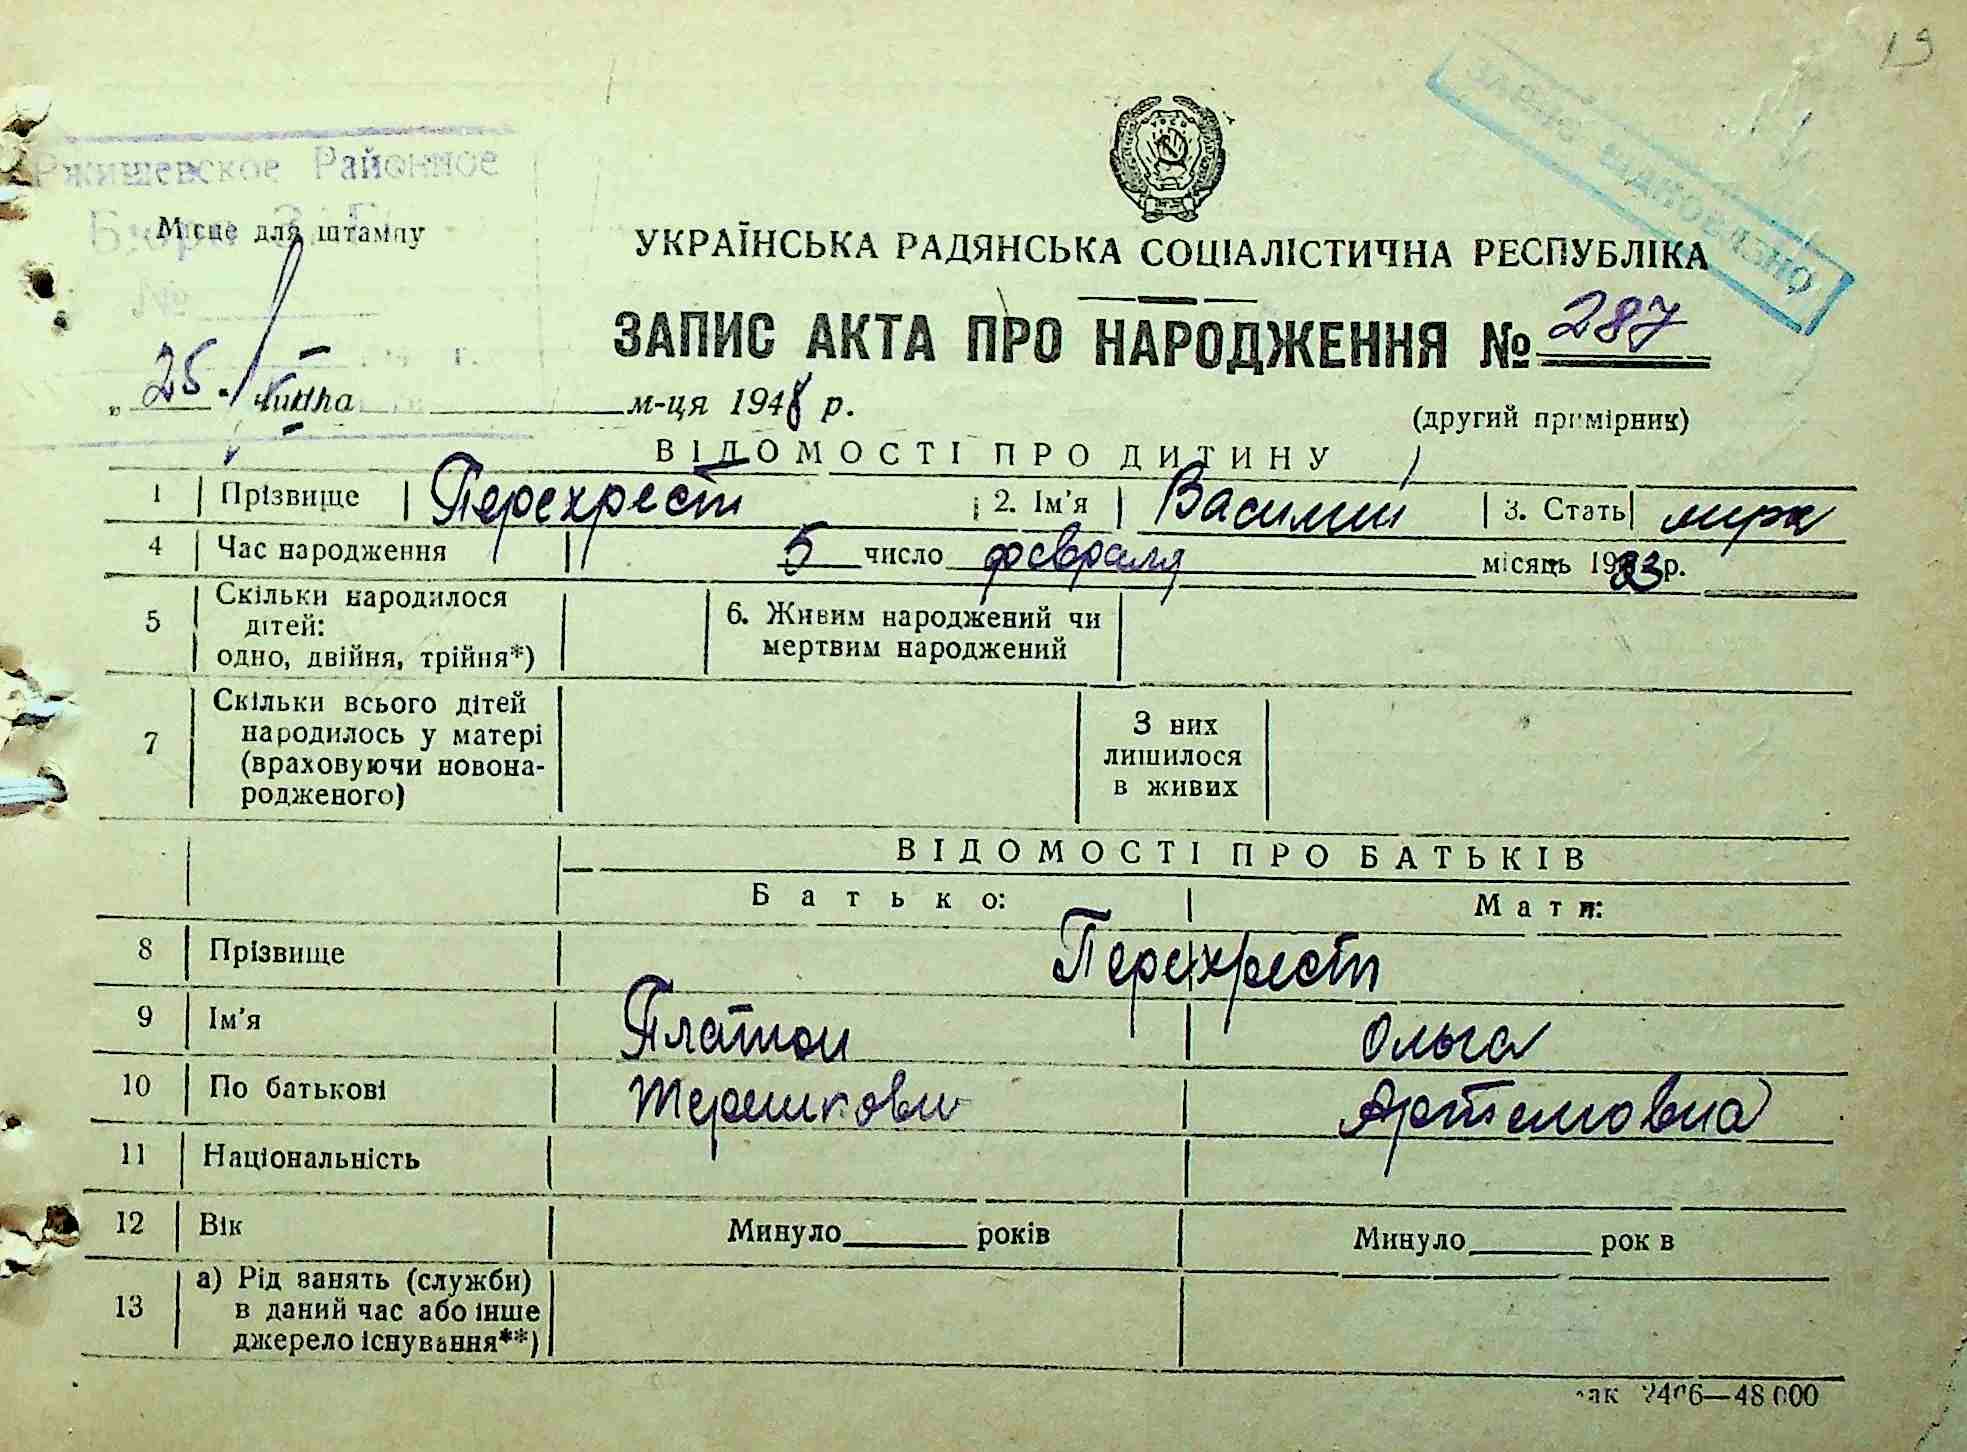 19
ЗАГС ВІДНОВЛЕНО
Ржищевское Районное
Бюро ЗАГС
Місце для штампу
№
УКРАЇНСЬКА РАДЯНСЬКА СОЦІАЛІСТИЧНА РЕСПУБЛІКА
ЗАПИС АКТА ПРО НАРОДЖЕННЯ № 287
„ 25 " м-ця 1948 р.
(другий примірник)
ВІДОМОСТІ ПРО ДИТИНУ
1 Прізвище Перехрест 2. Ім'я Василий 3. Стать
4 Час народження 5 число февраля місяць 1923 р.
5 Скільки народилося дітей: одно, двійня, трійня*) 6. Живим народжений чи мертвим народжений
7 Скільки всього дітей народилось у матері (враховуючи новона-родженого) З них лишилося в живих
ВІДОМОСТІ ПРО БАТЬКІВ
Батько: Мати:
8 Прізвище Перехрест
9 Ім'я Платон Ольга
10 По батькові Терешкови Артемовна
11 Національність
12 Вік Минуло років Минуло рок в
13 а) Рід занять (служби) в даний час або інше джерело існування**)
зак 2406—48 000